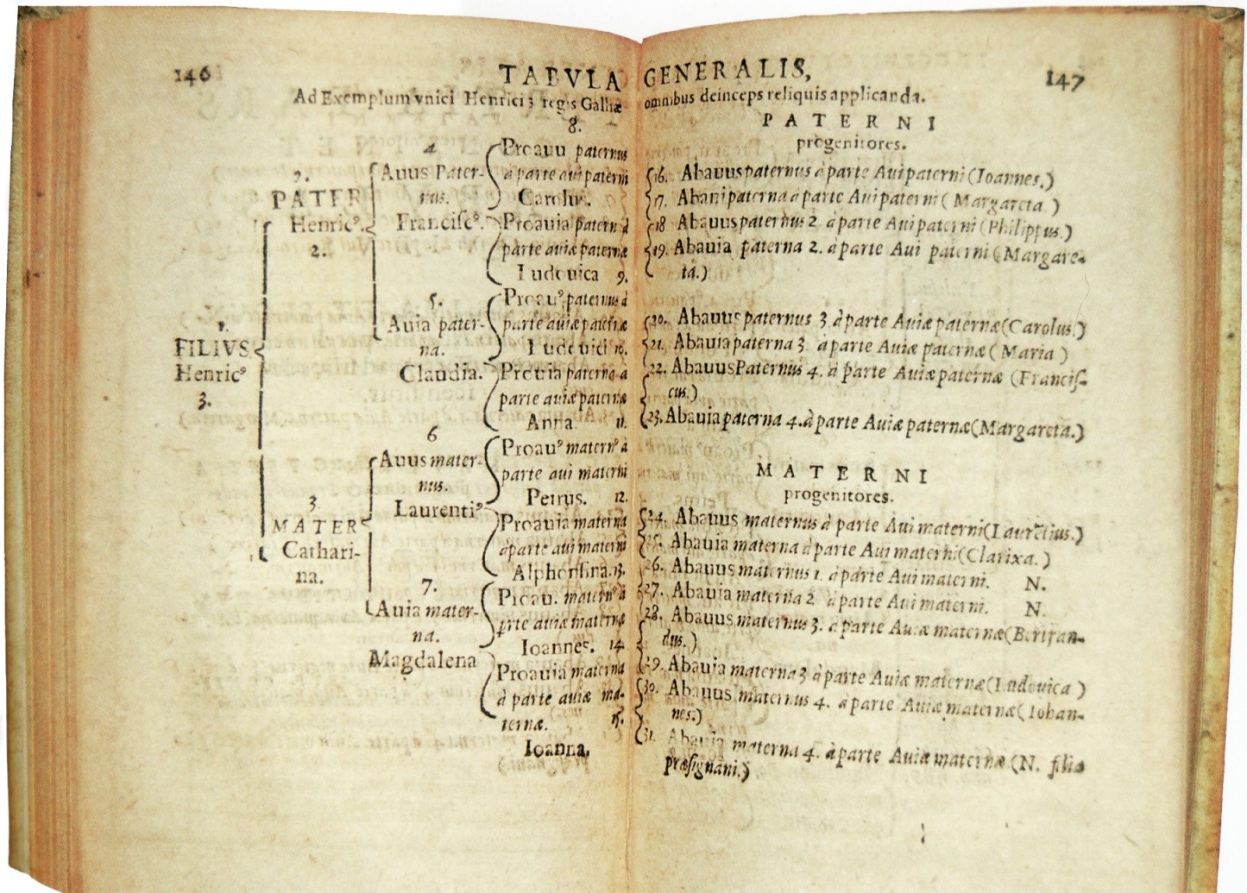 146
TABVLA GENERALIS,
147
Ad Exemplum vnici Henrici 3 regis Galliæ omnibus deinceps reliquis applicanda.
1.
FILIVS
Henricꝰ
3.
2.
PATER
Henricꝰ.
2.
3.
MATER
Cathari-
na.
4
Auus Pater-
nus.
Franciscꝰ.
5.
Auia pater-
na.
Claudia.
6
Auus mater-
nus.
Laurentiꝰ
7.
Auia mater-
na.
Magdalena
8.
Proauu paternus
à parte aui paterni
Carolus.
Proauia paterna
parte auiæ paternæ
Ludouica 9.
Proauꝰ paternus à
parte auiæ paternæ
Ludouici 10.
Proauia paterna a
parte auiæ paternæ
Anna. 11.
Proauꝰ maternꝰ à
parte aui materni
Petrus. 12.
Proauia materna
à parte aui materni
Alphonsina. 13.
Proau. maternꝰ à
prte auiæ maternæ
Ioannes. 14.
Proauia materna
à parte auiæ ma-
ternæ. 15.
Ioanna,
PATERNI
progenitores.
16. Abauus paternus à parte Aui paterni (Ioannes.)
17. Abani paterna à parte Aui paterni (Margareta)
18 Abauus paternus 2 à parte Aui paterni (Philippus.)
19. Abauia paterna 2. à parte Aui paterni (Margare-
ta.)
20. Abauus paternus 3 à parte Auiæ paternæ (Carolus.)
21. Abauia paterna 3. à parte Auiæ paternæ (Maria)
22. Abauus Paternus 4. à parte Auiæ paternæ (Francis-
cus.)
23. Abauia paterna 4. à parte Auiæ paternæ (Margareta.)
MATERNI
progenitores.
24. Abauus maternus à parte Aui materni (Laurẽtius.)
25. Abauia materna à parte Aui materni (Clarixa.)
26. Abauus maternus 1. à parte Aui materni. N.
27. Abauia materna 2 à parte Aui materni. N.
28. Abauus maternus 3. à parte Auiæ maternæ (Bertran-
dus.)
29. Abauia materna 3 à parte Auiæ maternæ (Ludouica)
30. Abauus maternus 4. à parte Auiæ maternæ (Iohan-
nes.)
31. Abauia materna 4. à parte Auiæ maternæ (N. filia
præsignani.)